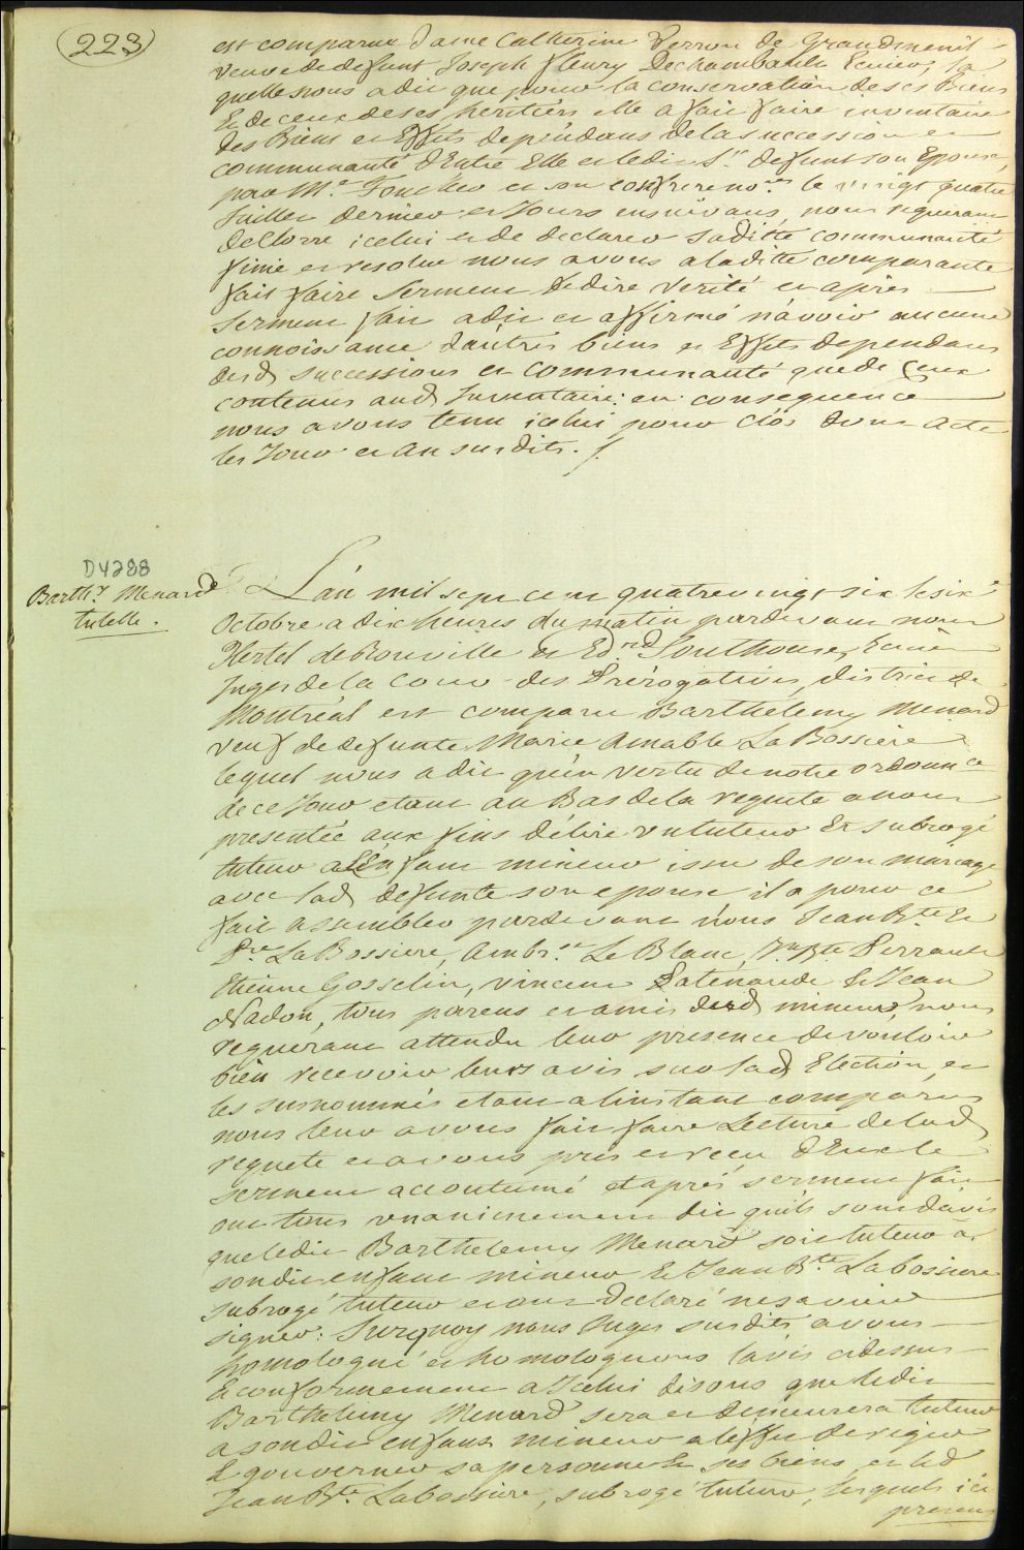 223
est comparue dame Catherine Verron de Grandmenil
veuve de defunt Joseph fleury Dechambault Ecuier, la
quelle nous a dit que pour la conservation de ses Biens
Et de ceux de ses heritiers elle a fait faire inventaire
des Biens et Effets dependans de la succession et
communauté d'Entre Elle et ledit Sr. defunt son Epoux,
par Me. Foucher et son confrere nore. le vingt quatre
Juillet dernier et Jours ensuivans, nous requerant
de Clorre icelui et de declarer saditte communauté
finie et resolue nous avons a laditte comparante
fait faire Serment de dire Verité et après
Serment fait a dit et affirmé n'avoir aucune
connoissance d'autres biens et Effets dependans
desd successions et communauté que de Ceux
contenus aud Inventaire; en consequence
nous avons tenu icelui pour clos dont acte
les Jour et An susdits. /.
D4288
Barthy. Menard
tutelle.
L'an mil sept cent quatre vingt six le six
Octobre a dix heures du matin pardevant nous
Hertel de Rouville et Edrd Southouse, Ecuiers
Juges de la Cour des Prérogatives, district de
Montréal est comparu Barthelemy Menard
veuf de defunte Marie Amable La Bossiere
lequel nous a dit qu'en vertu de notre ordonnce
de ce Jour etant au Bas de la requete a nous
presentée aux fins d'élire un tuteur Et subrogé
tuteur a l'Enfant mineur issu de son mariage
avec lad defunte son epouse il a pour ce
fait assembler pardevant nous Jean Bte Et
Pre La Bossiere, Ambse. Le Blanc, Jn. Bte Perrault
Etienne Gosselin, vincent Patenaude Et Jean
Nadon, tous parens et amis dud mineur, nous
requerant attendu leur presence de vouloir
bien recevoir leurs avis sur lad Election, et
les surnommés etant a l'instant comparus
nous leur avons fait faire Lecture de lad
requete et avons pris et reçu d'Eux le
serment accoutumé et après serment fait
ont tous unanimement dit qu'ils sont d'avis
que ledit Barthelemy Menard soit tuteur à
son dit enfant mineur Et Jean Bte. Labossiere
subrogé tuteur et ont declaré ne savoir
signer: Surquoy nous Juges susdits, avons
homologué et homologuons l'avis cidessus
Et conformement a Icelui disons que ledit
Barthelemy Menard sera et demeurera tuteur
a son dit enfant mineur a l'effet de regir
Et gouverner sa personne Et ses biens, et led
Jean Bte. Labossiere, subrogé tuteur, lesquels ici
presens